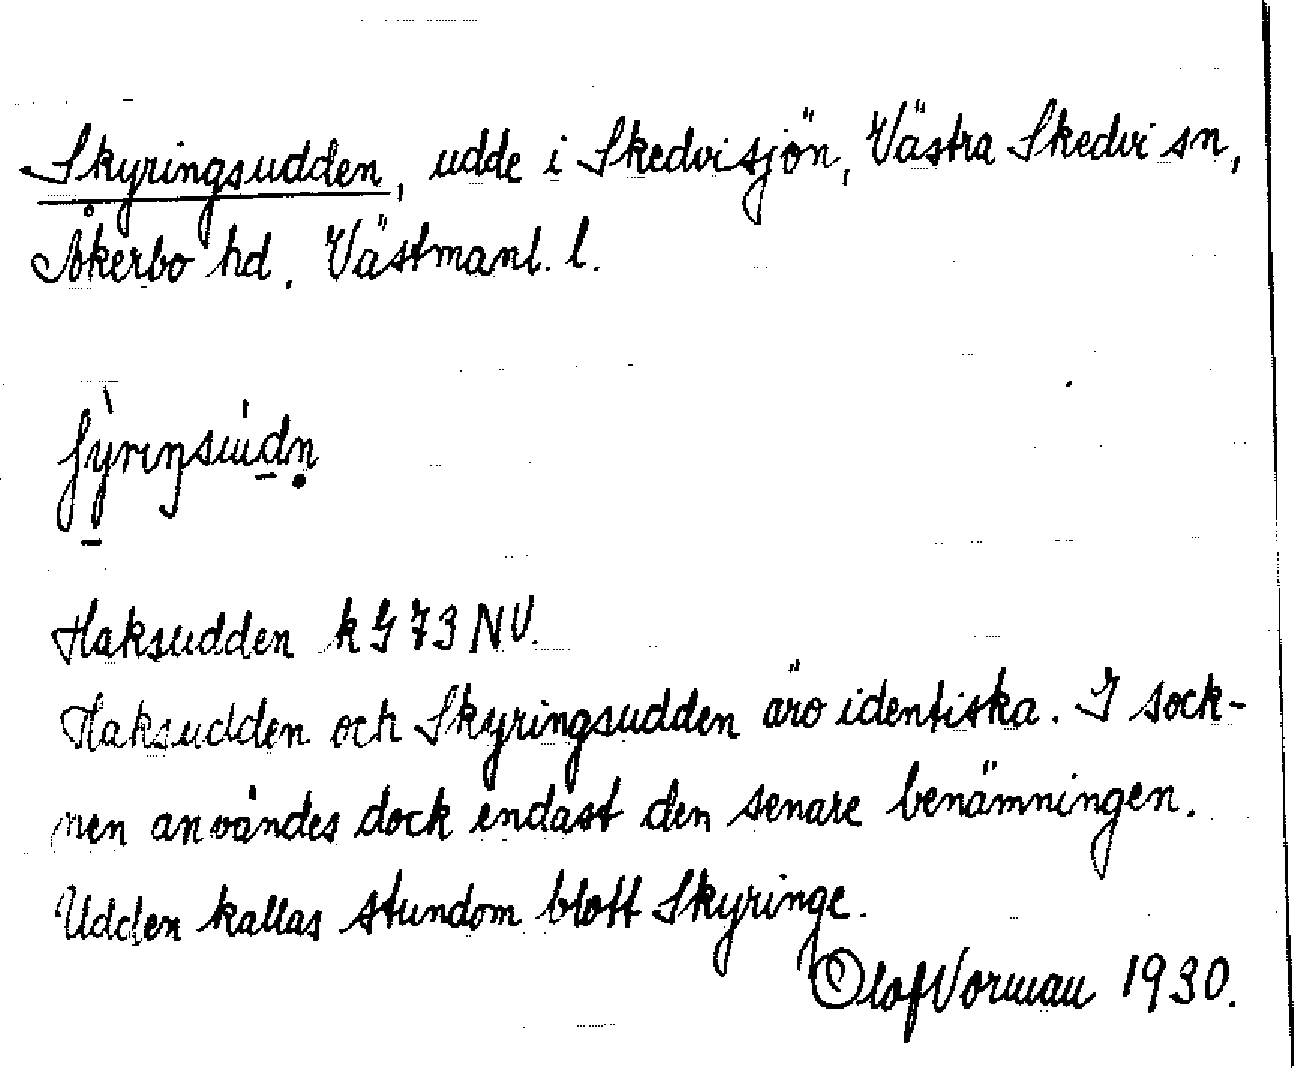 Skyringsudden, udde i Skedvisjön, Västra Skedvi sn,
Åkerbo hd. Västmanl. l.
Haksudden k G 73 NV.
Haksudden och Skyringsudden äro identiska. I sock-
nen användes dock endast den senare benämningen.
Udden kallas stundom blott Skyringe.
Olof Vorman 1930.